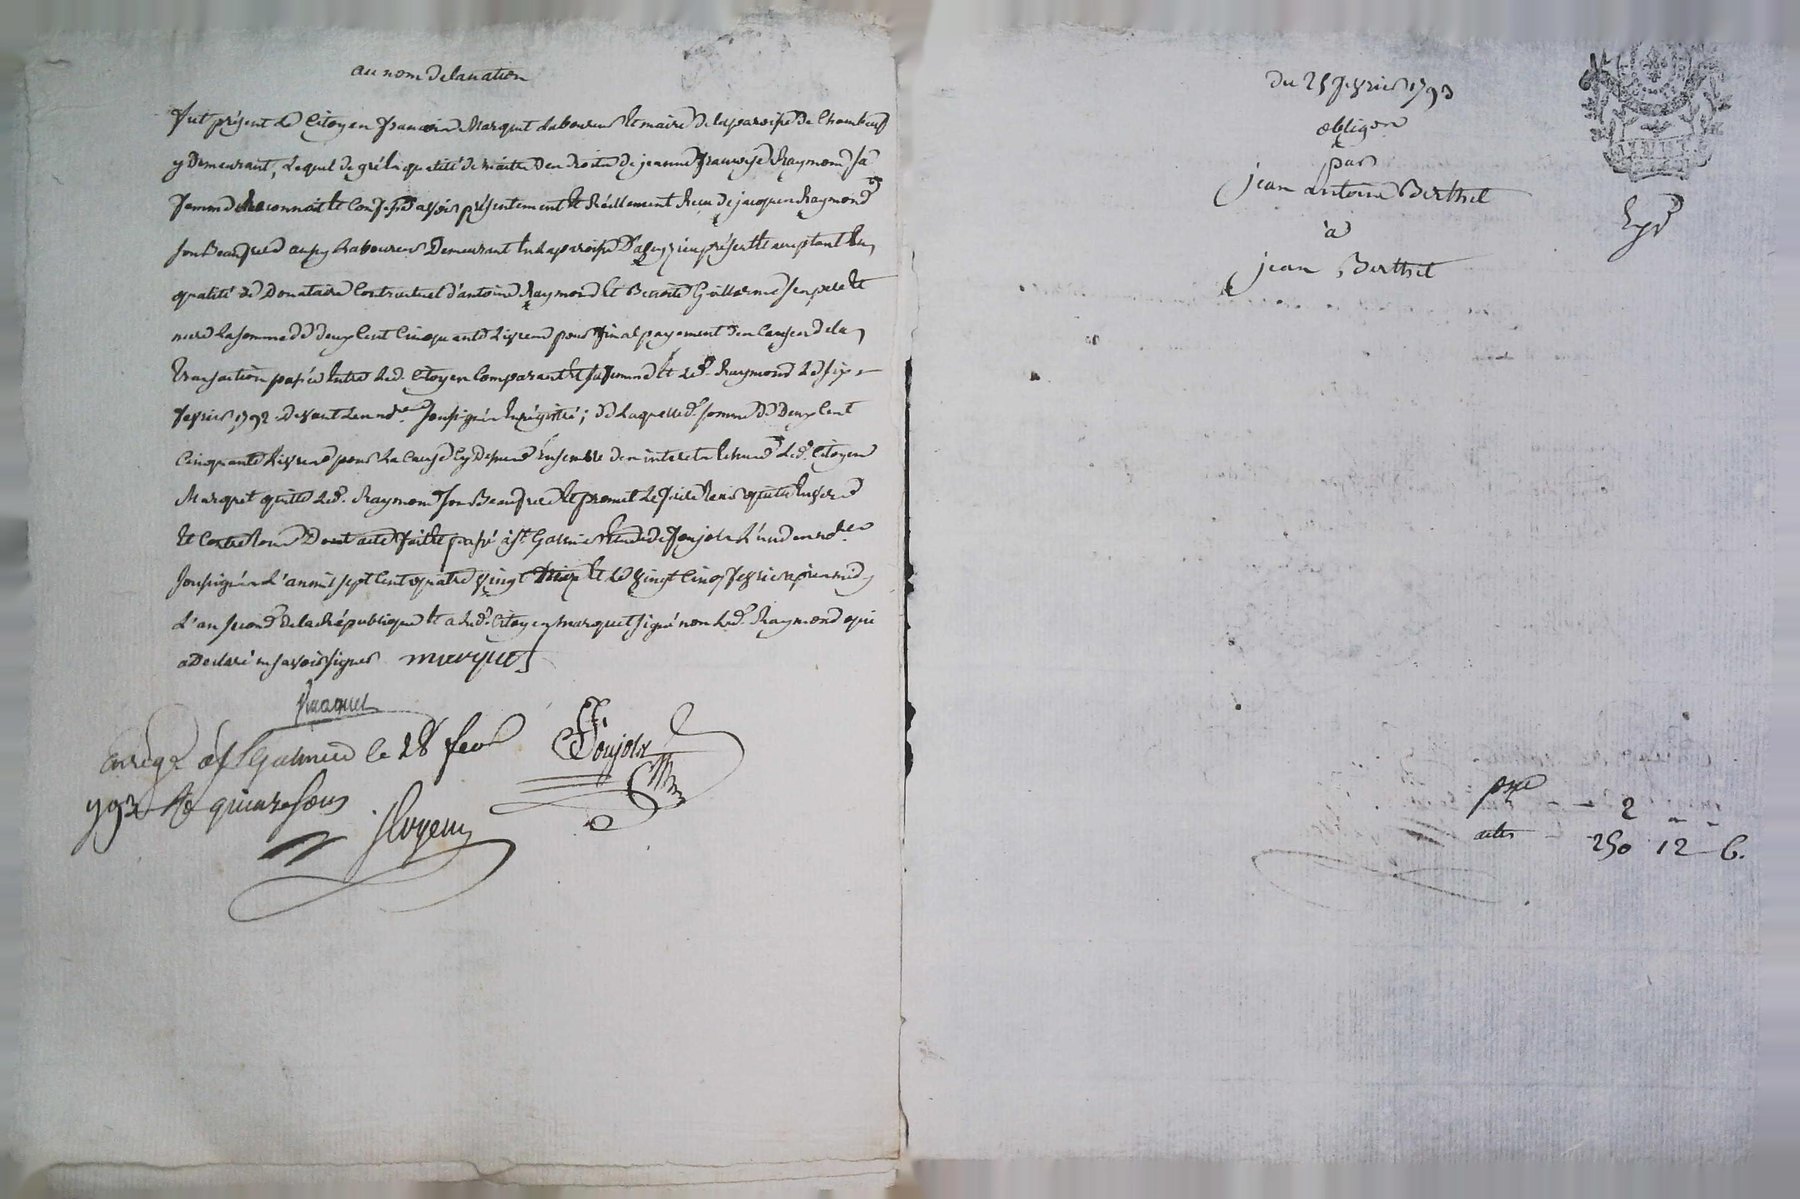 au nom de la nation
fut présent le Citoyen françois Marquet laboureur et maire de la paroisse de Chambeuf
y Demeurant, lequel de gré en qualité de maitre des droits de jeanne françoise Raymond sa
femme Reconnoit et Confesse avoir présentement et Réellement Reçu de jacques Raymond
son Beaufrere aussy Laboureur Demeurant en la paroisse présent et acceptant en
qualité de Donataire Contractuel d'antoine Raymond et Benoite Guillerme ses pere et
mere la somme de deux Cent Cinquante Livres pour final payement des Causes de la
transaction passée Entre led. Citoyen Comparant et sa femme et led. Raymond le six
fevrier 1792 devant le nore. soussigné Enrégistré; de laquelle somme de deux Cent
Cinquante Livres pour la Cause Cy Dessus Ensemble des interets led. Citoyen
Marquet quitte led. Raymond son Beaufrere et promet le faire tenir quitte Envers
et Contre tous Dont acte fait et passé à st Galmier Etude de foujols l'un des nores
soussignés L'an mil sept Cent quatre vingt treize et le vingt Cinq fevrier après midy
L'an second de la République et a led. Citoyen marquet signé non led. Raymond qui
a Declaré ne savoir signer marquet
Enregé à st Galmier le 28 fevr
1793 Rç quinze sous
foujols
du 25 fevrier 1793
obligon
par
jean antoine Berthet
à
jean Berthet
Expé
2
actes 250 12 6.